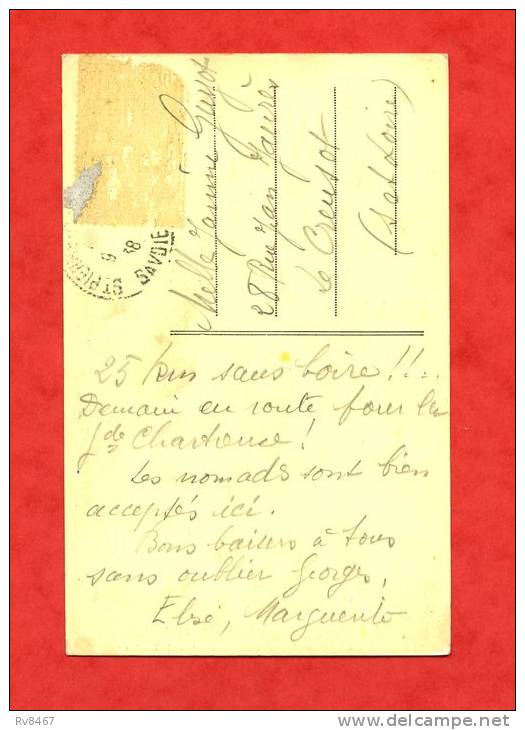 Melle Janine Guyot
28 Rue Jean Jaurès
Le Creusot
(S et Loire)
ST PIER
SAVOIE
9
38
25 km sans boire !!...
Demain en route pour la
Gde Chartreuse !
Les nomades sont bien
acceptés ici.
Bons baisers à tous
sans oublier Georges,
Marguerite
Rv8467
www.delcampe.net